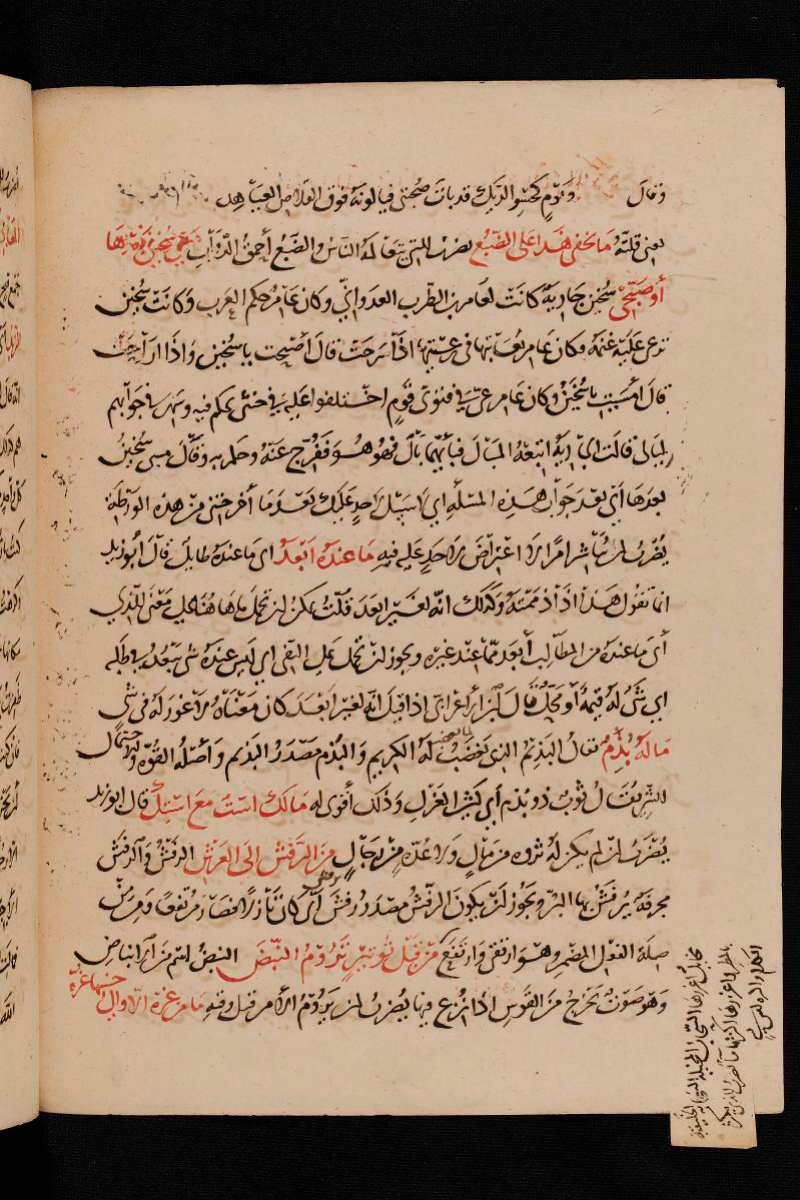 وقال وقوم كحسو الديك قد بات صحبتي ينالونه فوق القلاص العياهل
يعنى قلته ما يخفى هذا على الضبع يضرب للشئ يتعالمه الناس والضبع أحمق الدواب مسي سخيل بعدها
أو صبحى سخيل جارية كانت لعامر بن الظرب العدوانى وكان عامر حكم العرب وكانت سخيل
ترعى عليه غنمه وكان عامر يعاتبها فى رعيتها اذا سرحت قال أصبحت يا سخيل واذا اراحت
قال أمسيت يا سخيل وكان عامر عى فى فتوى قوم اختلفوا عليه فى خنثى يحكم فيه وسهر فى جوابهم
ليالى قالت الجارية اتبعه المبال فبأيهما بال فهو هو ففرج عنه وحكم به وقال مسي سخيل
بعدها اى بعد جواب هذه المسئلة اى لا سبيل لاحد عليك بعد ما أخرجتنى من هذه الورطة
يضرب لمن يباشر امرا لا اعتراض لاحد عليه فيه ما عنده ابعد اى ما عنده طايل قال أبو زيد
انما تقول هذا اذا ذممته وكذلك انه لغير ابعد قلت يمكن ان تحمل ما هاهنا على معنى الذى
أى ما عنده من المطالب أبعد مما عند غيره ويجوز ان تحمل على النفى اى ليس عنده شئ يبعد فى طلبه
اى شئ له قيمة أو محل قال ابن الاعرابى اذا قيل انه لغير ابعد كان معناه لا غور له فى شئ
ما له بذم يقال البذيم الذى يغضب لما يجب له الكريم والبذم مصدر البذيم وأصله القوة والاحتمال
للشئ يقال ثوب ذو بذم أى كثير الغزل وذلك أقوى له مالك است مع استك قال ابو زيد
يضرب لمن لم يكن له ثروة من مال ولا عدة من رجال من الرفش الى العرش الرفش والرفش
مجرفة يرفش بها البر ويجوز ان يكون الرفش مصدر رفش أى كان نازلا فصار مرتفعا ومن
صلة الفعل المضمر وهو ارتقى وارتفع من قبل توتير تروم النبض النبض اسم من الانباض
وهو صوت يخرج من القوس اذا نزع فيها يضرب لمن يروم الامر قبل وقته ما من عزة الا والى جنبها عرة